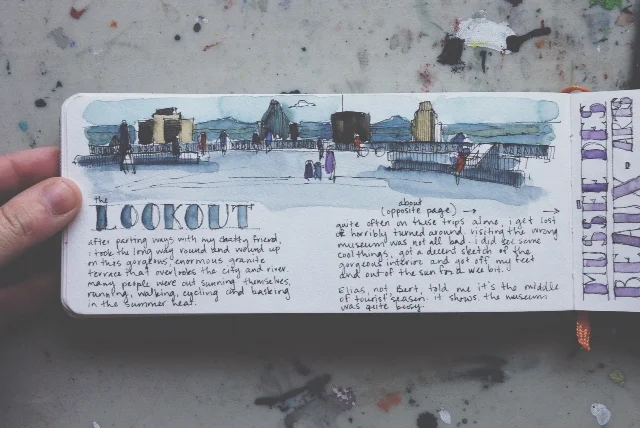 the
LOOKOUT
after parting ways with my chatty friend,
i took the long way round and wound up
on this gorgeous, enormous granite
terrace that overlooks the city and river.
many people were out sunning themselves,
running, walking, cycling and basking
in the summer heat.
about
(opposite page) →
quite often on these trips alone, i get lost
or horribly turned around, visiting the wrong
museum was not all bad. i did see some
cool things, got a decent sketch of the
gorgeous interior and got off my feet
and out of the sun for a wee bit.
Elias, not Bert, told me it's the middle
of tourist season. it shows. the museum
was quite busy.
MUSÉE DES
BEAUX-ARTS